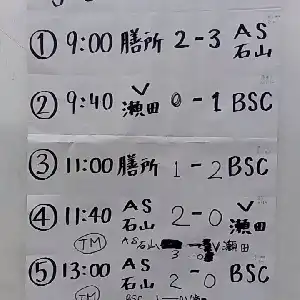 ① 9:00 膳所 2-3 AS石山
② 9:40 V瀬田 0-1 BSC
③ 11:00 膳所 1-2 BSC
④ 11:40 AS石山 2-0 V瀬田
JM AS石山 3-0 V瀬田
⑤ 13:00 AS石山 2-0 BSC
JM BSC